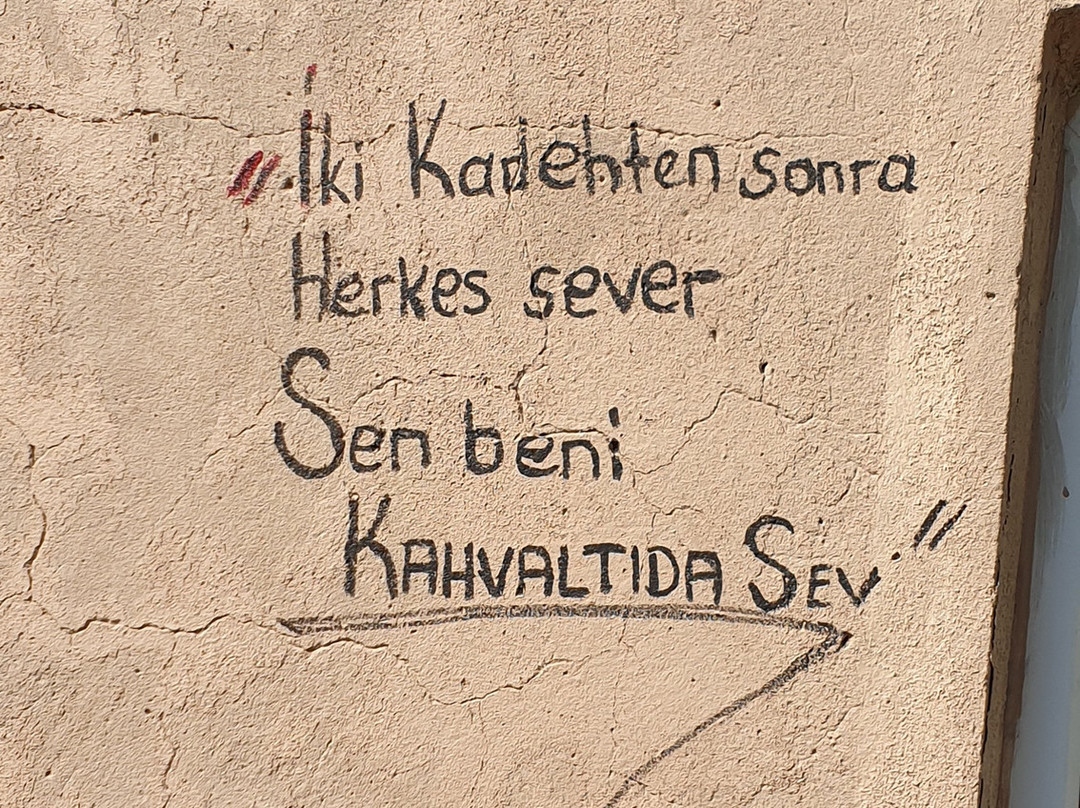 "İki Kadehten sonra
Herkes sever
Sen beni
KAHVALTIDA SEV."